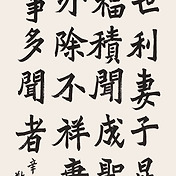 世利妻子
福積聞成聖
除不祥
事多聞者
辛